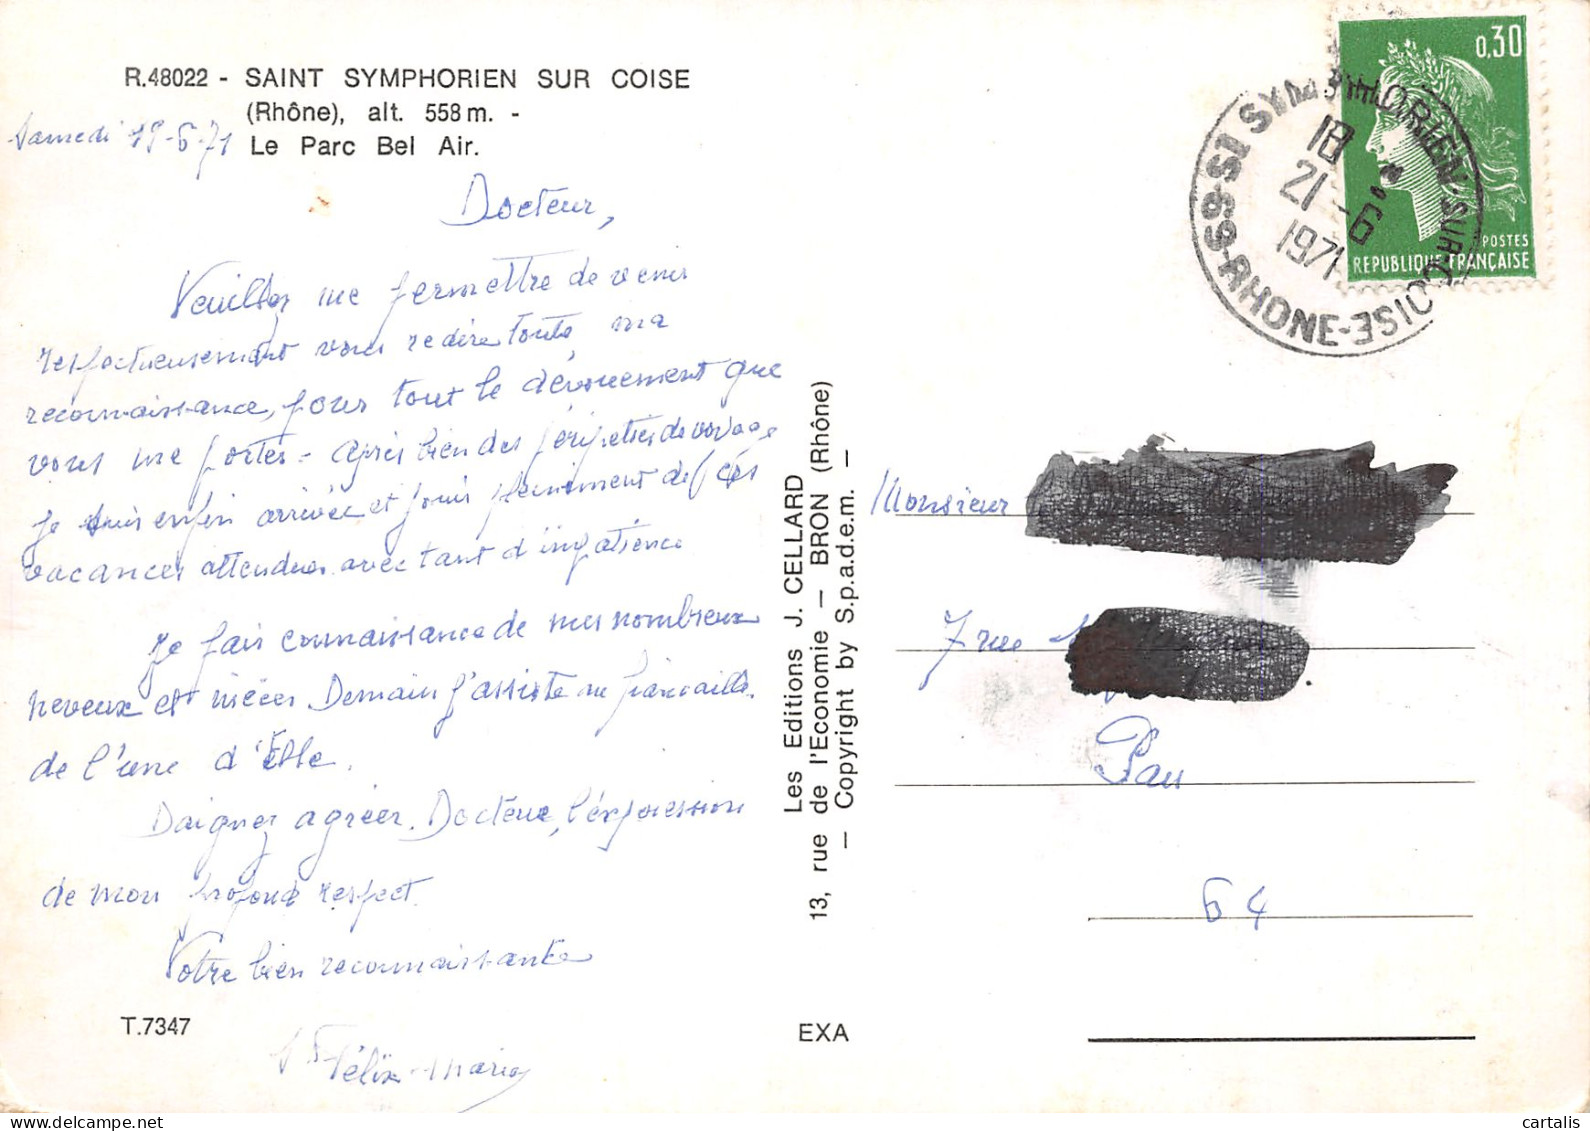 R.48022 - SAINT SYMPHORIEN SUR COISE
(Rhône), alt. 558 m. -
Le Parc Bel Air.
Samedi 19-6-71
Docteur,
Veuillez me permettre de venir
respectueusement vous redire toute ma
reconnaissance, pour tout le dévouement que
vous me portez - après bien des péripéties de voyage
je suis enfin arrivée et jouis pleinement de ces
vacances attendues avec tant d'impatience
Je fais connaissance de mes nombreux
neveux et nièces. Demain j'assiste au fiançailles
de l'une d'Elle.
Daignez agréer, Docteur, l'expression
de mon profond respect.
Votre bien reconnaissante
Sr Félix-Marie
T.7347
Les Editions J. CELLARD
13, rue de l'Economie - BRON (Rhône)
- Copyright by S.p.a.d.e.m. -
EXA
0,30
POSTES
REPUBLIQUE FRANÇAISE
69-ST SYMPHORIEN-SUR-COISE-RHONE
18 H
21-6
1971
Monsieur le
7 rue
Pau
64
cartalis